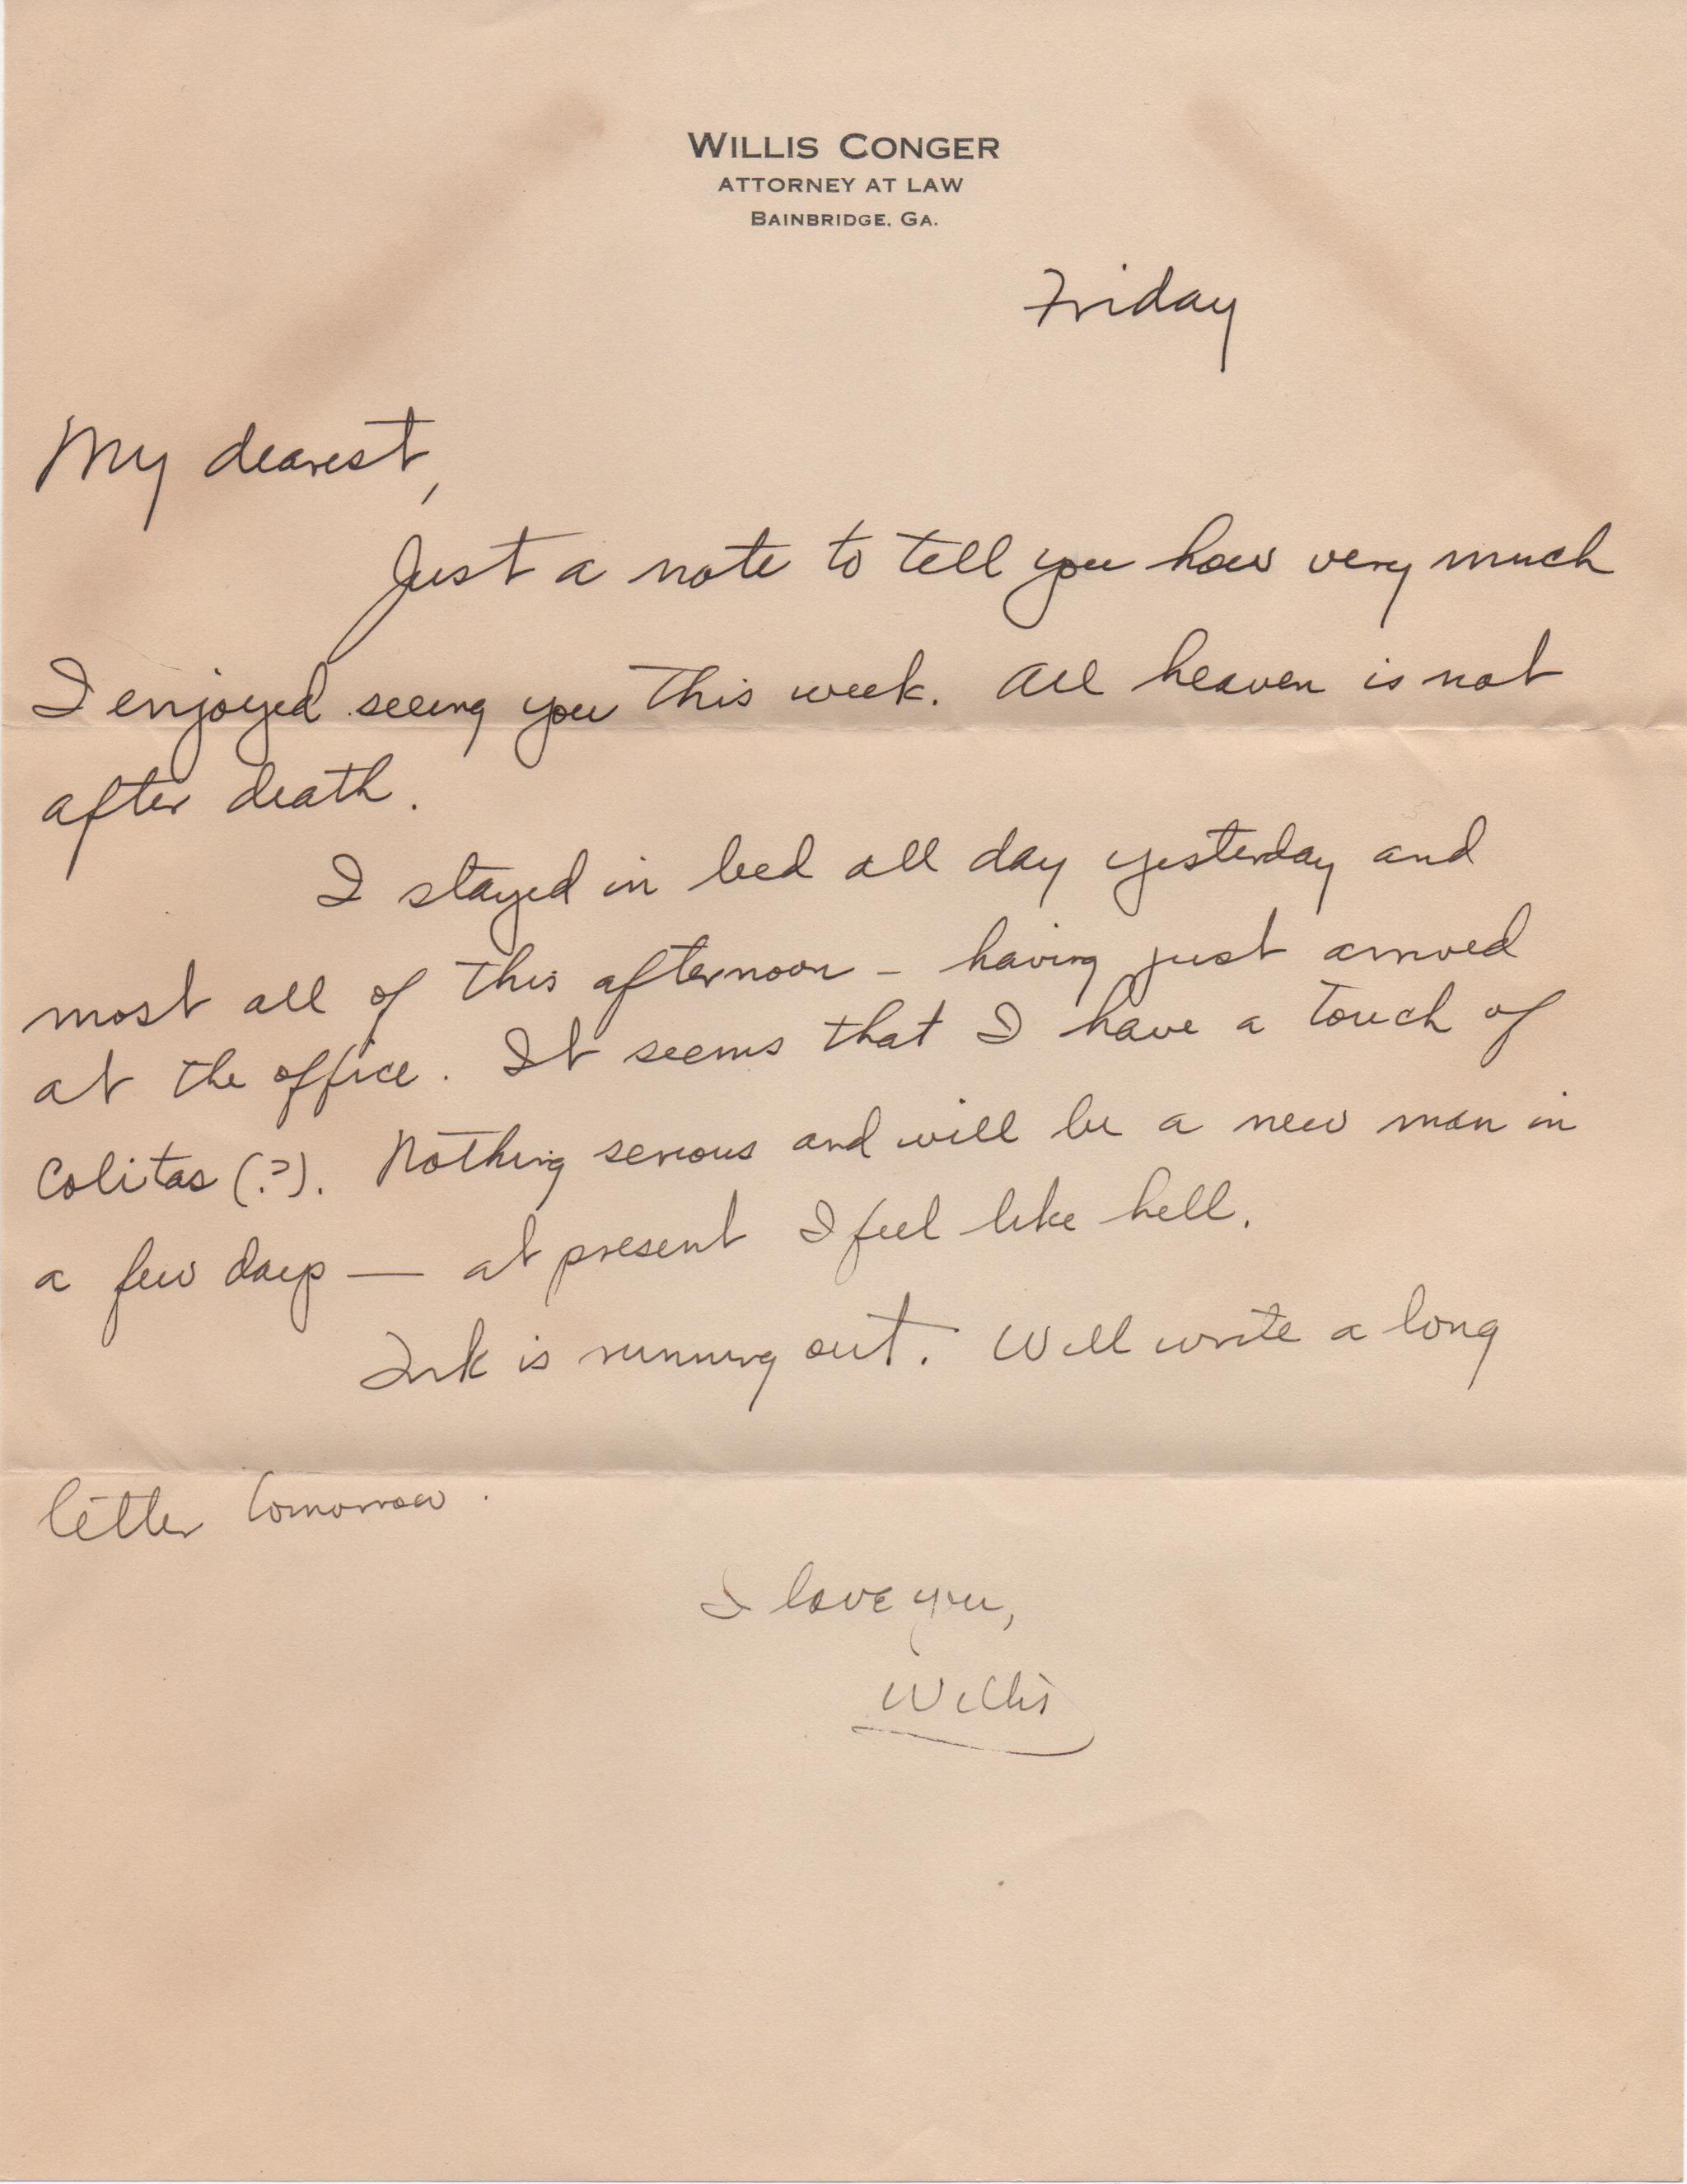 WILLIS CONGER
ATTORNEY AT LAW
BAINBRIDGE, GA.
Friday
My dearest,
Just a note to tell you how very much
I enjoyed seeing you this week. All heaven is not
after death.
I stayed in bed all day yesterday and
most all of this afternoon - having just arrived
at the office. It seems that I have a touch of
Colitas (?). Nothing serious and will be a new man in
a few days — at present I feel like hell.
Ink is running out. Will write a long
letter tomorrow.
I love you,
Willis